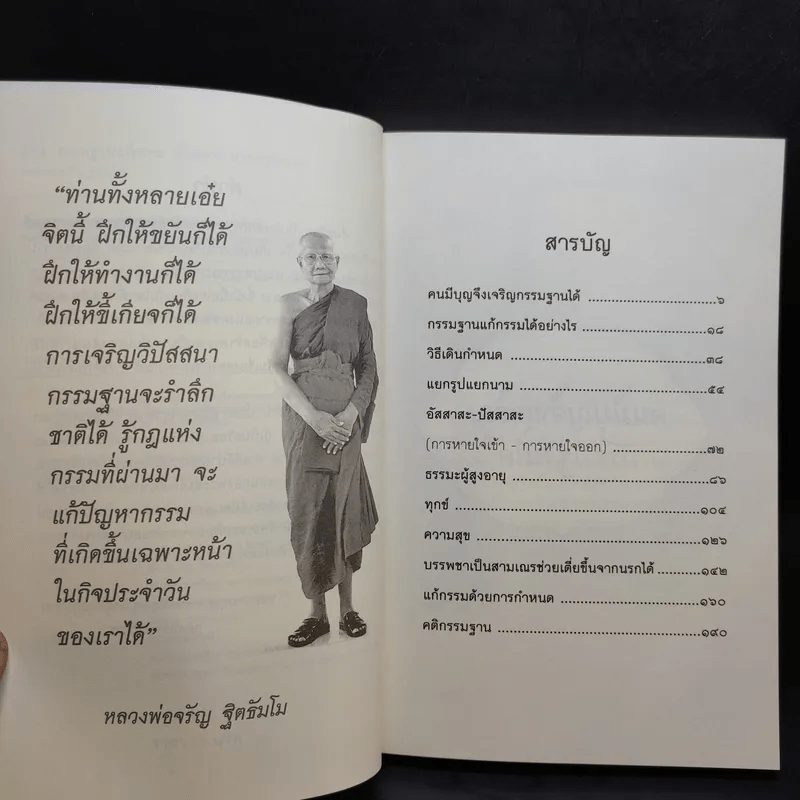 “ท่านทั้งหลายเอ๋ย
จิตนี้ ฝึกให้ขยันก็ได้
ฝึกให้ทำงานก็ได้
ฝึกให้ขี้เกียจก็ได้
การเจริญวิปัสสนา
กรรมฐานจะรำลึก
ชาติได้ รู้กฎแห่ง
กรรมที่ผ่านมา จะ
แก้ปัญหากรรม
ที่เกิดขึ้นเฉพาะหน้า
ในกิจประจำวัน
ของเราได้”
หลวงพ่อจรัญ ฐิตธัมโม
สารบัญ
คนมีบุญจึงเจริญกรรมฐานได้ ................................๖
กรรมฐานแก้กรรมได้อย่างไร ................................๑๘
วิธีเดินกำหนด ................................๓๘
แยกรูปแยกนาม ................................๕๔
อัสสาสะ-ปัสสาสะ
(การหายใจเข้า - การหายใจออก) ........................๗๒
ธรรมะผู้สูงอายุ ................................๘๖
ทุกข์ ................................๑๐๔
ความสุข ................................๑๒๖
บรรพชาเป็นสามเณรช่วยเตี่ยขึ้นจากนรกได้ ............๑๔๒
แก้กรรมด้วยการกำหนด ................................๑๖๐
คติกรรมฐาน ................................๑๙๐